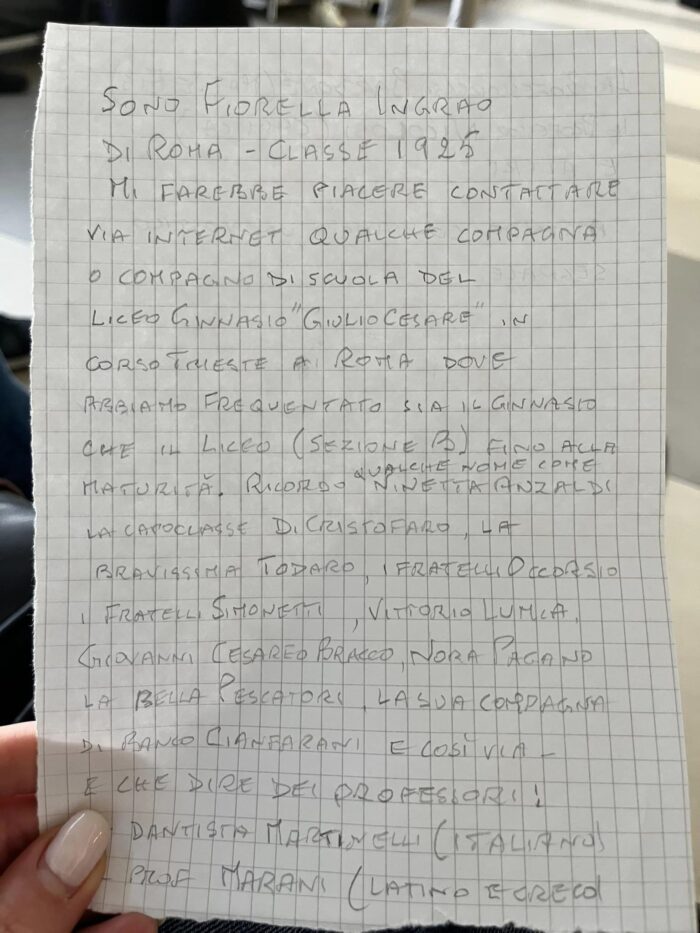 SONO FIORELLA INGRAO
DI ROMA - CLASSE 1925
MI FAREBBE PIACERE CONTATTARE
VIA INTERNET QUALCHE COMPAGNA
O COMPAGNO DI SCUOLA DEL
LICEO GINNASIO "GIULIO CESARE" IN
CORSO TRIESTE A ROMA DOVE
ABBIAMO FREQUENTATO SIA IL GINNASIO
CHE IL LICEO (SEZIONE B) FINO ALLA
QUALCHE NOME COME
MATURITÀ. RICORDO NINETTA ANZALDI
LA CAPOCLASSE DI CRISTOFARO, LA
BRAVISSIMA TODARO, I FRATELLI OCCORSIO
I FRATELLI SIMONETTI, VITTORIO
GIOVANNI CESAREO BRACCO, NORA PAGANO
LA BELLA PESCATORI, LA SUA COMPAGNA
DI BANCO CIANFARANI E COSÌ VIA -
E CHE DIRE DEI PROFESSORI!
- DANTISTA MARTINELLI (ITALIANO)
- PROF MARANI (LATINO E GRECO)